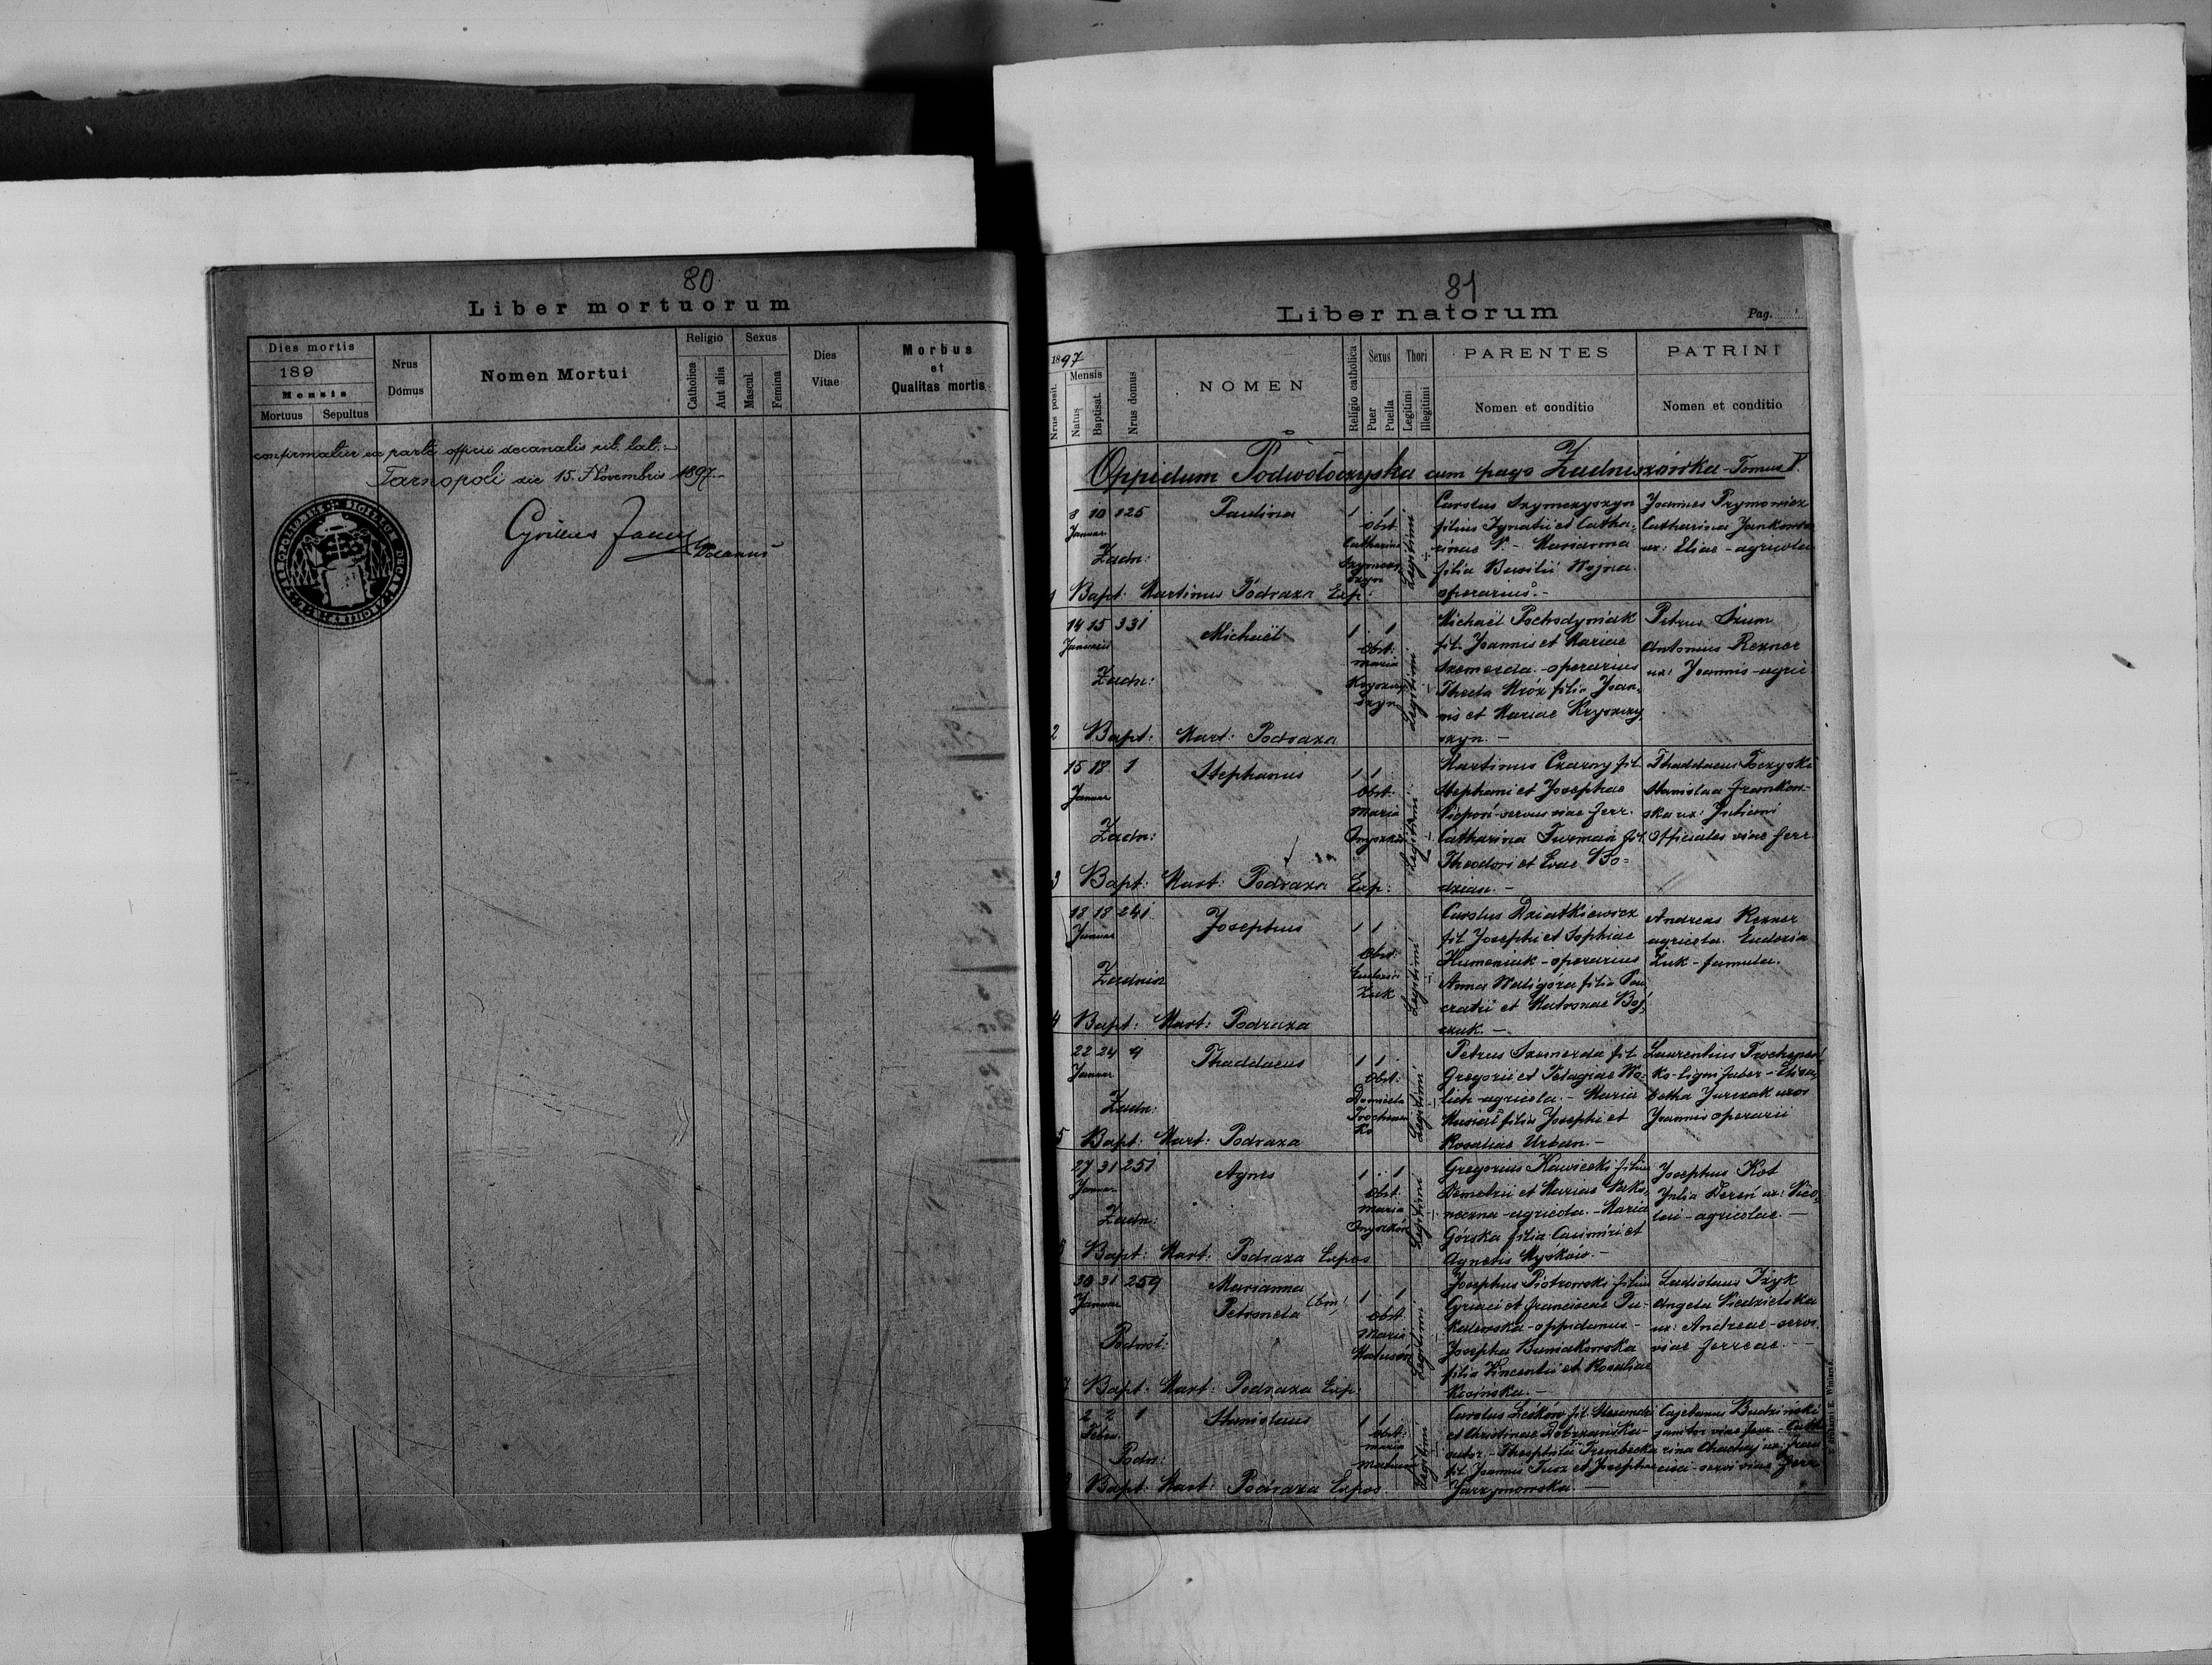 80
Liber mortuorum
Dies mortis
189
Mensis
Mortuus
Sepultus
Nrus
Domus
Nomen Mortui
Religio
Catholica
Aut alia
Sexus
Mascul.
Femina
Dies
Vitae
Morbus
et
Qualitas mortis
confirmatur ex parte officii decanalis rit. lat:
Tarnopoli die 15. Novembris 1897
Cyrillus
Decanus
81
Liber natorum
Pag.
1897
Nrus posit.
Mensis
Natus
Baptisat.
Nrus domus
NOMEN
Religio catholica
Sexus
Puer
Puella
Thori
Legitimi
Illegitimi
PARENTES
Nomen et conditio
PATRINI
Nomen et conditio
Oppidum Podwołoczyska cum pago Zadniszówka - Tomus V.
8 10 125
Januar
Zadn:
Paulina
1 . 1
Obst.
Catharina
Szymczy
szyn
Legitimi
Carolus Szymczyszyn
filius Ignatii et Catha-
rinae N. - Marianna
filia Basilii Wojna
operarius. -
Joannes Prymowicz
Catharina Jankowska
ux: Eliae - agricola
1 Bapt: Martinus Podraza Exp:
14 15 331
Januarii
Zadn:
Michaël
1 . 1
Obst:
Maria
Kryszczy
szyn
Legitimi
Michaël Pochodyniak
fil. Joannis et Mariae
Szemerda - operarius
Thecla Mróz filia Joan-
nis et Mariae Kryszczy
szyn. -
Petrus Szum
Antonius Rexner
ux: Joannis - agric
2 Bapt: Mart: Podraza
15 18 1
Januar
Zadn:
Stephanus
1 1
Obst:
Maria
Legitimi
Martinus Czarny fil.
Stephani et Josephae
servus viae ferr.
Catharina Furman fil.
Theodori et Evae Bo-
dzian. -
Thaddaeus Toczyski
Stanislaa Frankow-
ska ux: Juliani
Officiales viae ferr.
3 Bapt: Mart: Podraza Exp:
18 18 241
Januar
Zadnisz
Josephus
1 1
Obst:
Eudoxia
Żuk
Legitimi
Carolus Dziatkiewicz
fil. Josephi et Sophiae
Humeniuk - operarius
Anna Maligóra filia Pan
cratii et Matronae Boj
czuk. -
Andreas Rexner
agricola. Eudoxia
Żuk - famula.
4 Bapt: Mart: Podraza
22 24 9
Januar
Zadn:
Thaddaeus
1 1
Obst:
Domicela
Trochimen
ko
Legitimi
Petrus Szemerda fil.
Gregorii et Pelagiae Wo-
lich - agricola. - Maria
Musiał filia Josephi et
Rosaliae Urban. -
Laurentius Trochimen
ko - ligni faber - Elisa-
betha Jurczak uxor
Joannis operarii
5 Bapt: Mart: Podraza
27 31 251
Januar
Zadn:
Agnes
1 . 1
Obst:
Maria
Legitimi
Gregorius Kawiecki filius
Demetrii et Mariae
agricola - Maria
Górska filia Casimiri et
Agnetis Myśków. -
Josephus Kot
Julia Dereń ux: Nico-
lai - agricolae. -
6 Bapt: Mart: Podraza Expos
30 31 259
Januar
Podwoł:
Marianna
Petronela (bin)
1 . 1
Obst
Maria
Matusów
Legitimi
Josephus Piotrowski filius
Cyriaci et Franciscae Pu-
kalewska - oppidanus -
Josepha Buniakowska
filia Vincentii et Rosaliae
Kosińska. -
Ladislaus Iżyk
Angela Niedzielska
ux: Andreae - servi
viae ferreae. -
7 Bapt: Mart: Podraza Exp:
2 2 1
Febru.
Podw:
Stanislaus
1 1
Obst:
Maria
Legitimi
Carolus fil. Alexandri
et Christinae Dobrzańska
Theophila Trembecka
fil. Joannis et Josephae
Jarzymowska. -
Cajetanus Budzinski
janitor viae ferr. - Catha
rina ux: Fran
cisci - servi viae ferr
8 Bapt: Mart: Podraza Expos.